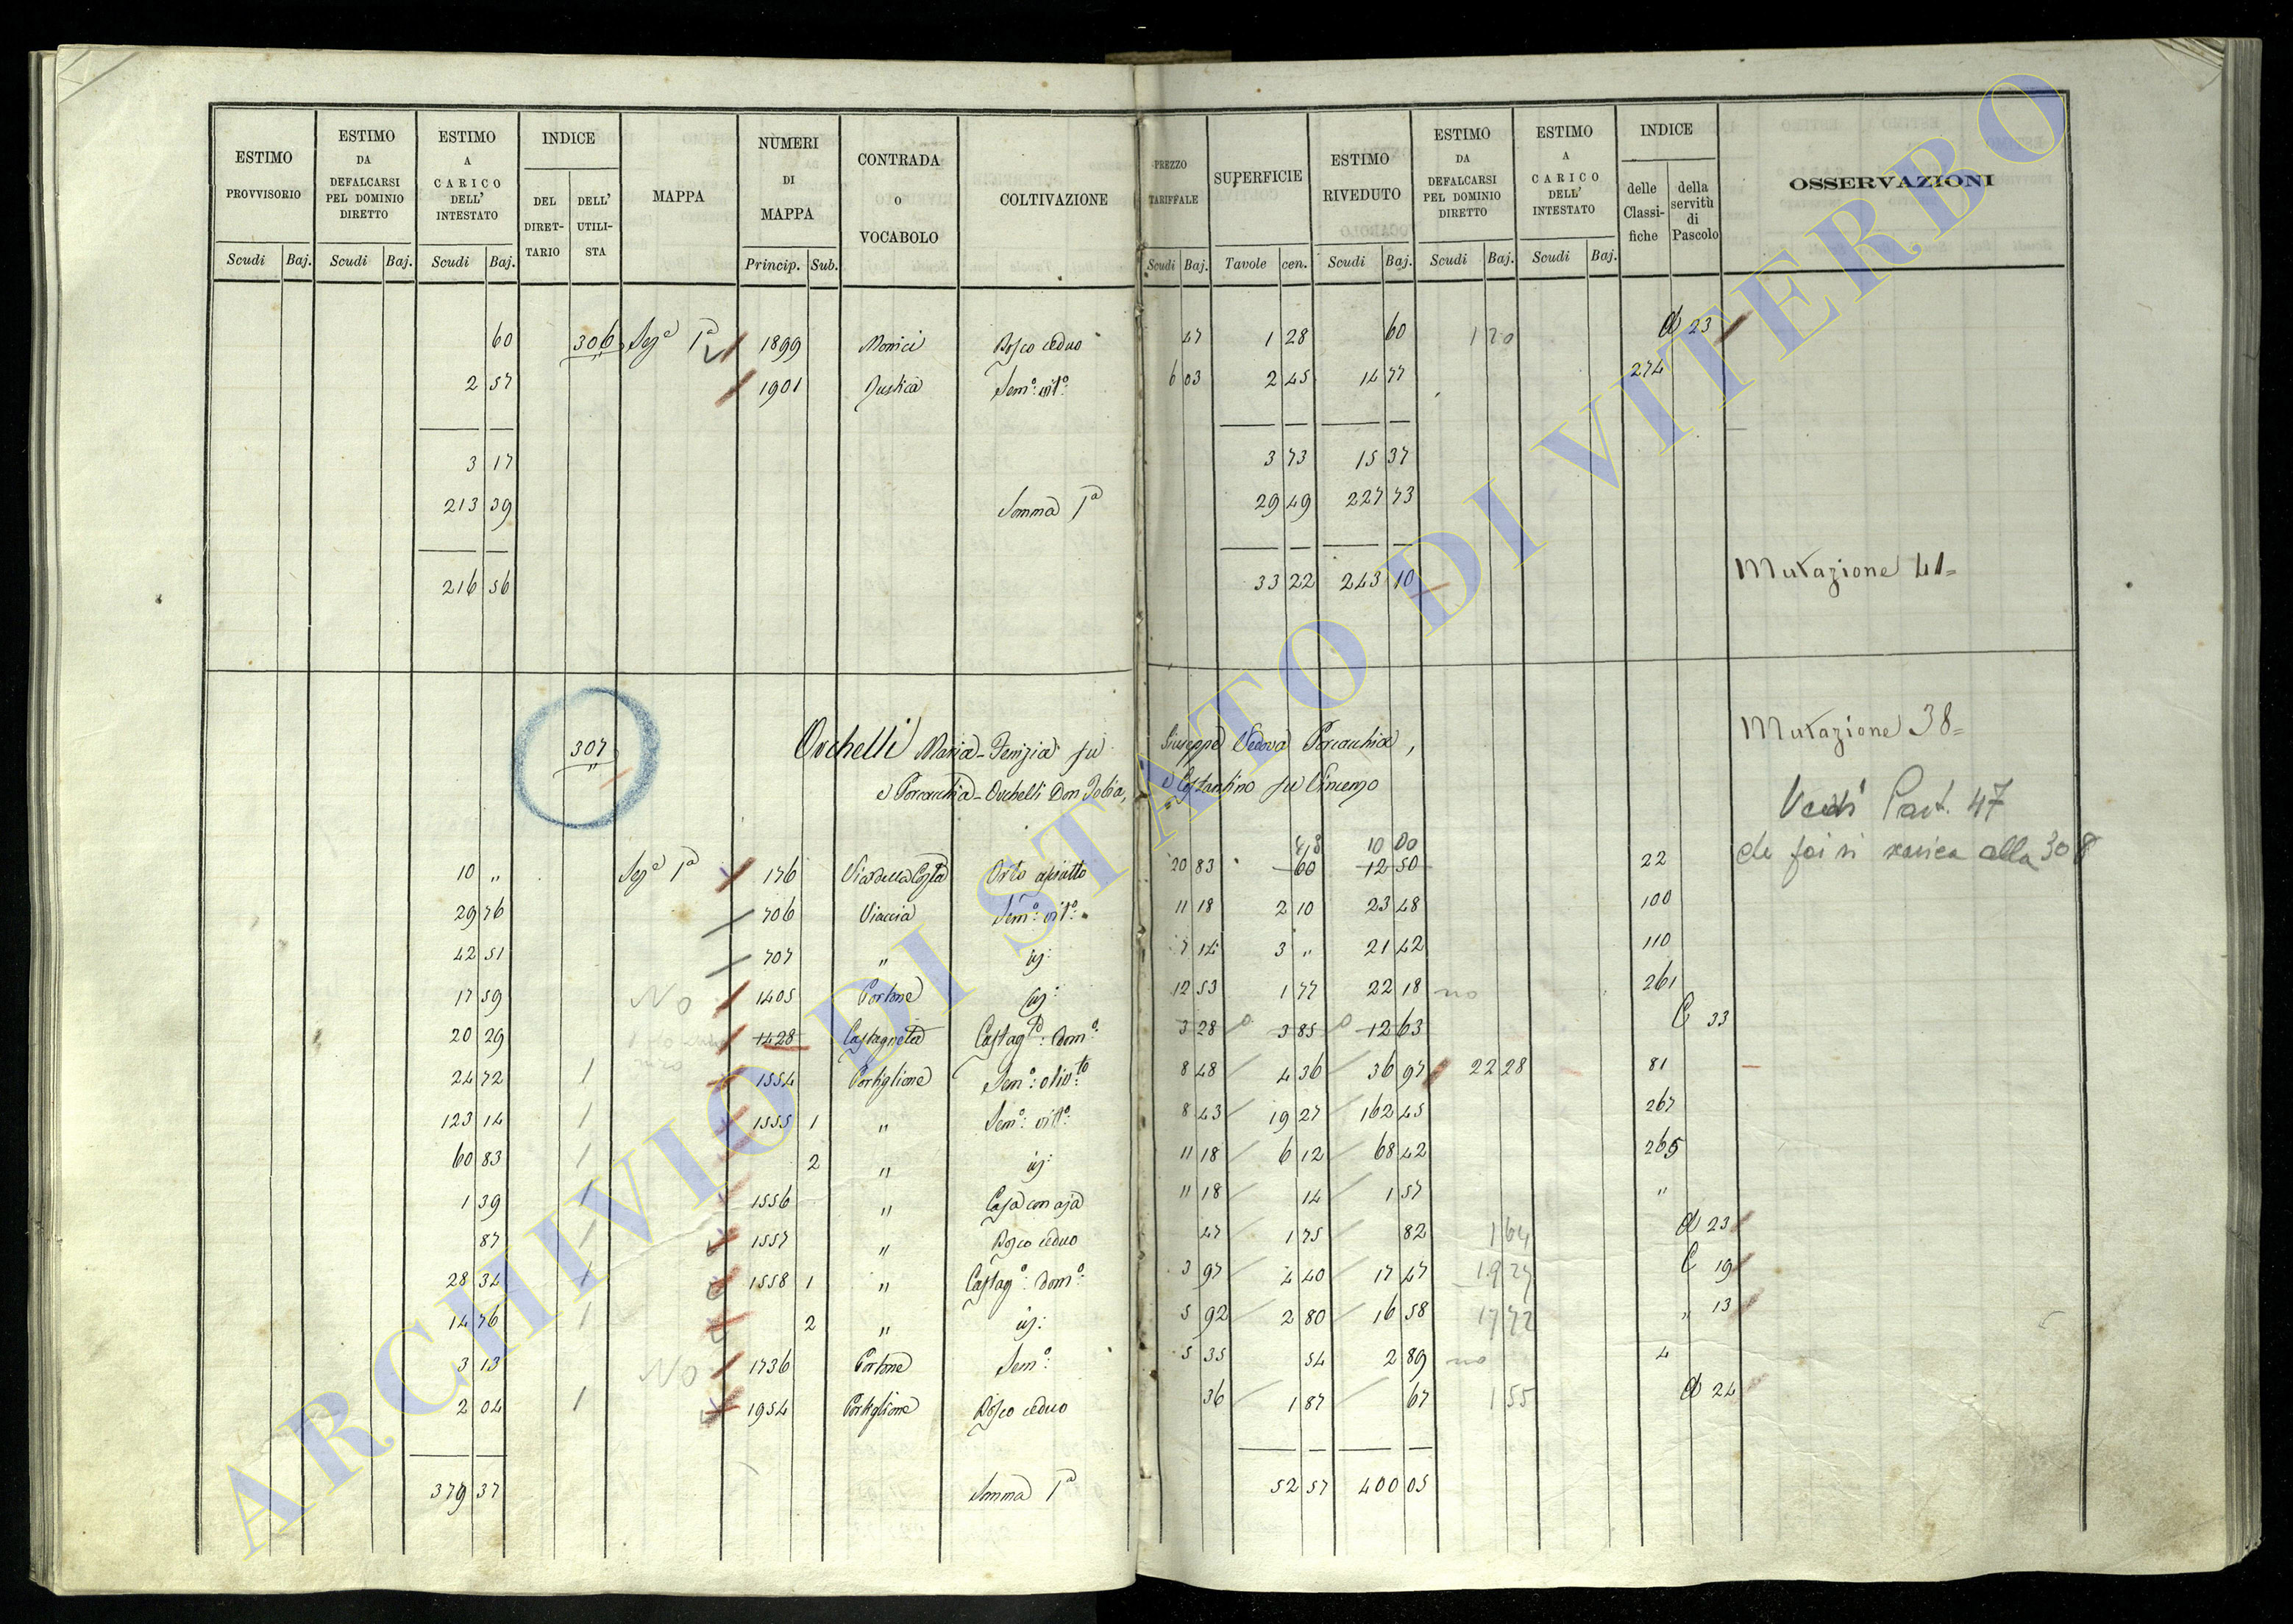 ESTIMO PROVVISORIO | ESTIMO DA DEFALCARSI PEL DOMINIO DIRETTO | ESTIMO A CARICO DELL' INTESTATO | INDICE | MAPPA | NUMERI DI MAPPA | CONTRADA O VOCABOLO | COLTIVAZIONE | PREZZO TARIFFALE | SUPERFICIE | ESTIMO RIVEDUTO | ESTIMO DA DEFALCARSI PEL DOMINIO DIRETTO | ESTIMO A CARICO DELL' INTESTATO | INDICE | OSSERVAZIONI
DEL DIRETTARIO | DELL' UTILISTA | delle Classifiche | della servitù di Pascolo
Scudi | Baj. | Scudi | Baj. | Scudi | Baj. | Princip. | Sub. | Scudi | Baj. | Tavole | cen. | Scudi | Baj. | Scudi | Baj. | Scudi | Baj.
60 306 Seg.a 1a 1899 Monici Bosco ceduo 47 1 28 60 1 20 d 23
2 57 1901 Rustica Sem.o vit.o 6 03 2 45 14 77 274
3 17 3 73 15 37
213 39 Somma 1a 29 49 227 73
216 56 33 22 243 10 Mutazione 41=
307 Ovchelli Maria-Fenizia fu Giuseppe Vedova Porcacchia, Mutazione 38=
e Porcacchia-Ovchelli Don Tobia, e Costantino fu Vincenzo
Vedi Part. 47
48 10 00
10 " Seg.a 1a 176 Via della Costa Orto asciutto 20 83 60 12 50 22 che poi si scarica alla 308
29 76 706 Viaccia Sem.o vit.o 11 18 2 10 23 48 100
42 51 707 " id: 7 14 3 " 21 42 110
17 59 No 1405 Portone id: 12 53 1 77 22 18 no 261
20 29 1428 Castagneta Castag.to: dom.o: 3 28 3 85 12 63 C 33
24 72 1 1554 Portiglione Sem.o: oliv.to 8 48 4 36 36 97 22 28 81
123 14 1 1555 1 " Sem.o: vit.o: 8 43 19 27 162 45 267
60 83 1 2 " id: 11 18 6 12 68 42 265
1 39 1 1556 " Casa con aja 11 18 14 1 57 "
87 1 1557 " Bosco ceduo 47 1 75 82 1 64 d 23
28 34 1 1558 1 " Castag.o: dom.o: 3 97 4 40 17 47 19 27 C 19
14 76 1 2 " id: 5 92 2 80 16 58 17 72 " 13
3 13 No 1736 Portone Sem.o: 5 35 54 2 89 no 4
2 04 1 1954 Portiglione Bosco ceduo 36 1 87 67 1 55 d 24
379 37 Somma 1a 52 57 400 05
ARCHIVIO DI STATO DI VITERBO